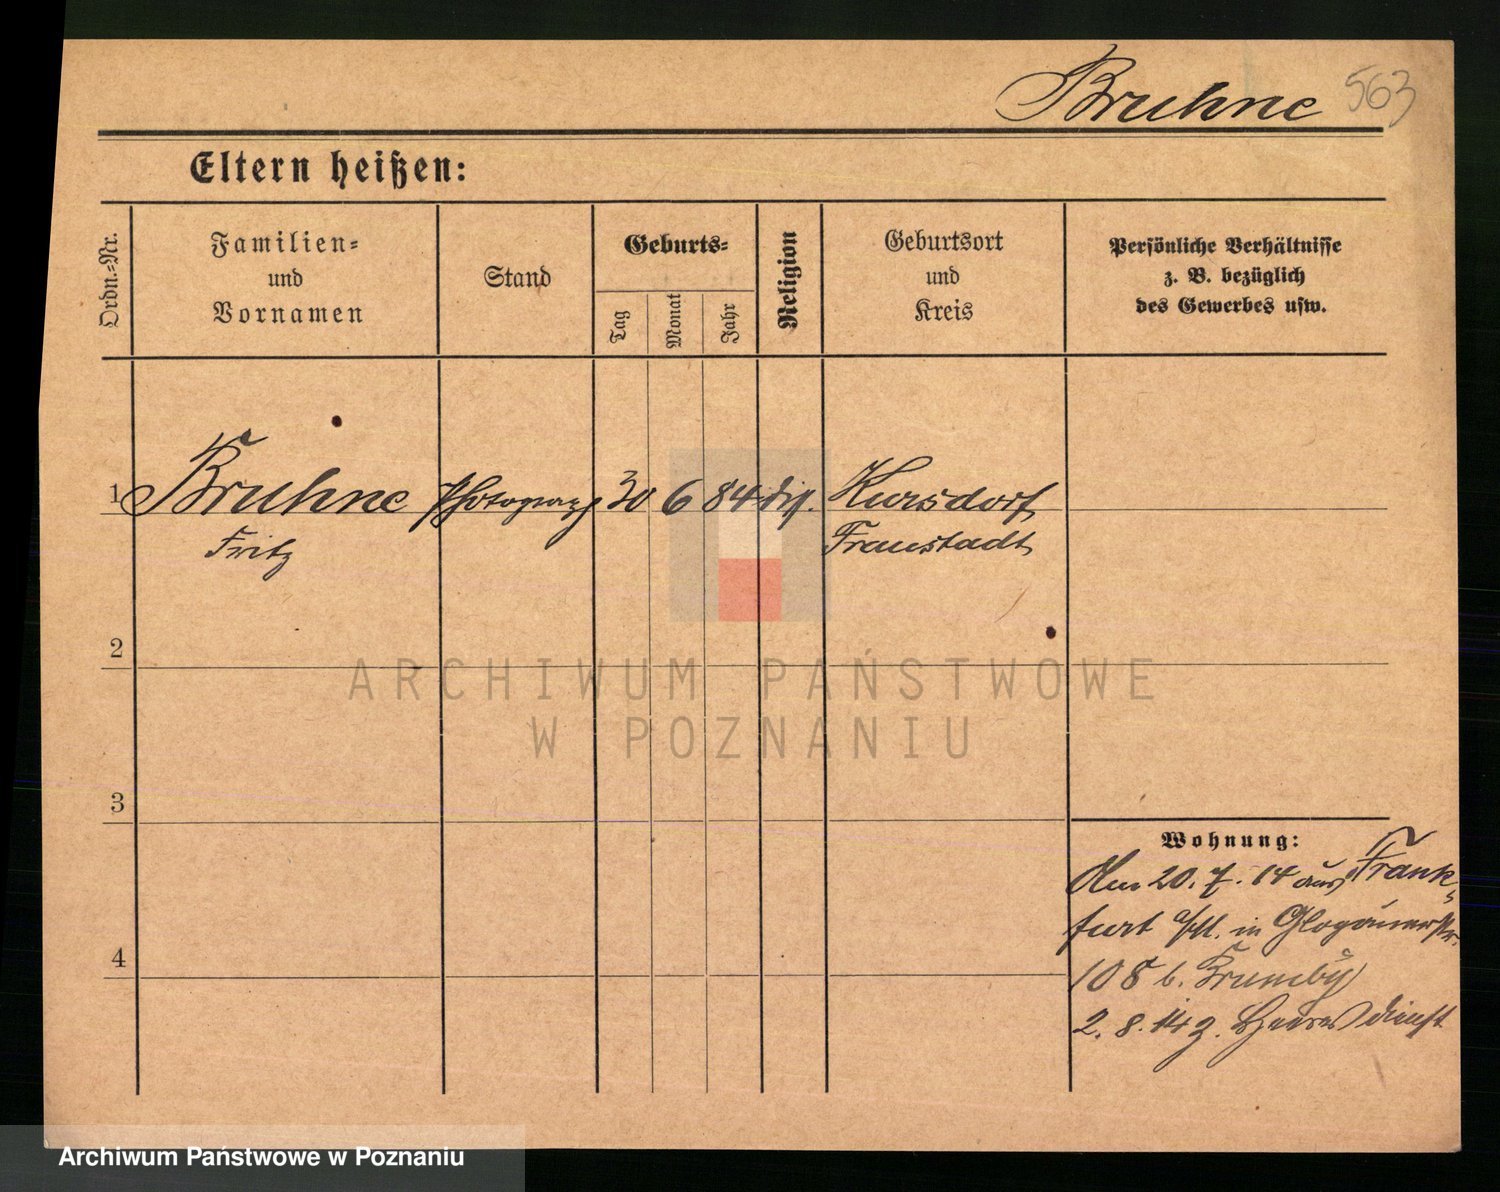 Bruhne 563
Eltern heißen:
Ordn.-Nr.
Familien-
und
Vornamen
Stand
Geburts-
Tag
Monat
Jahr
Religion
Geburtsort
und
Kreis
Persönliche Verhältnisse
z. B. bezüglich
des Gewerbes usw.
1 Bruhne Photograph 30 6 84 Kursdorf
Fritz Fraustadt
2
3
4
Wohnung:
Am 20. 7. 14 aus Frank-
furt a/M. in Glogauerstr.
108 b.
2. 8. 14 z. Heeresdienst
ARCHIWUM PAŃSTWOWE
W POZNANIU
Archiwum Państwowe w Poznaniu